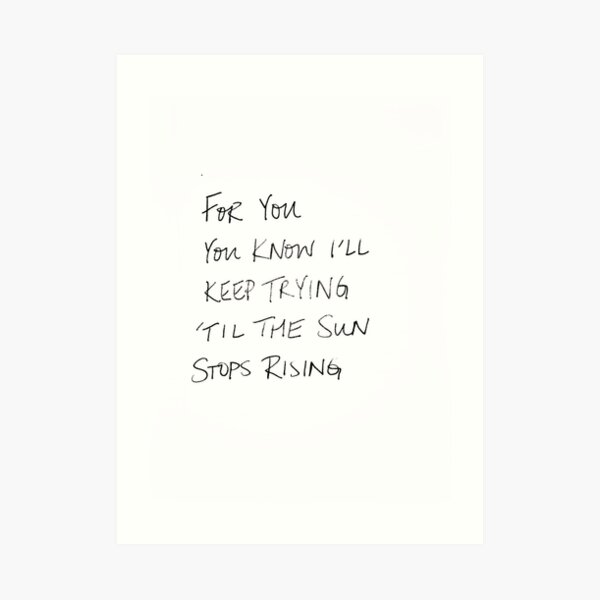 FOR YOU
YOU KNOW I'LL
KEEP TRYING
'TIL THE SUN
STOPS RISING